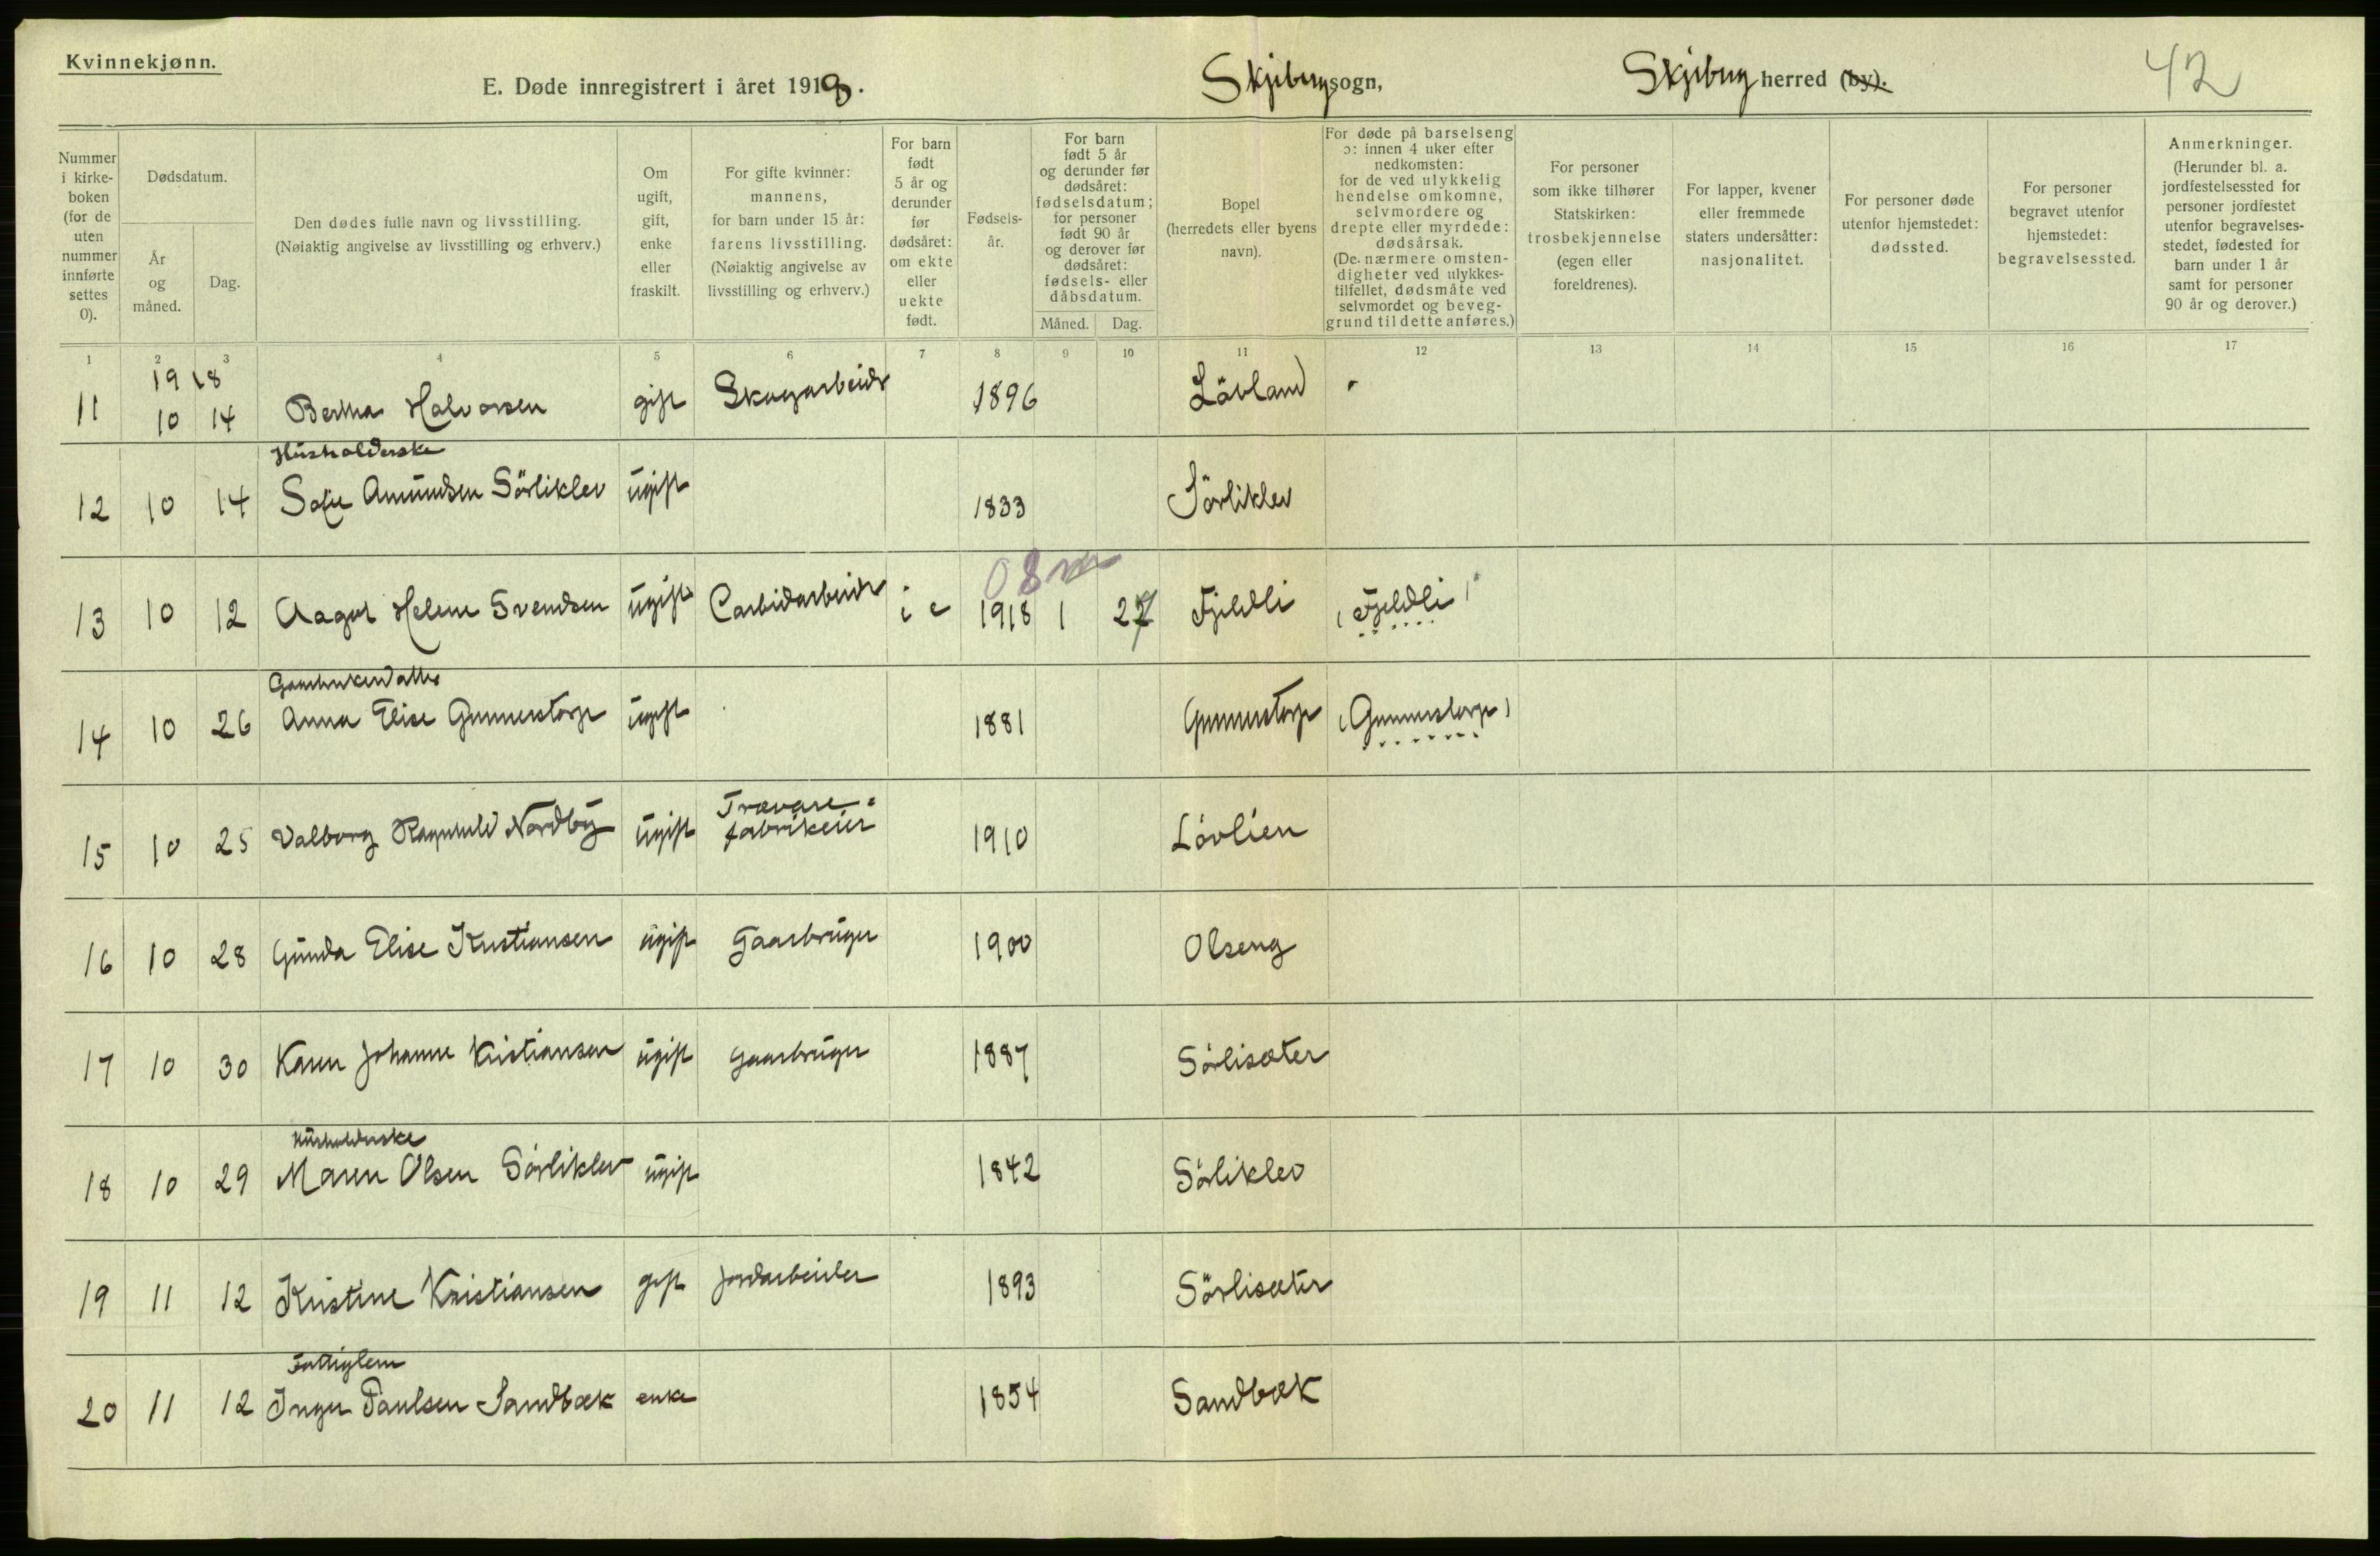 Kvinnekjønn.
E. Døde innregistrert i året 1918. Skjeberg sogn, Skjeberg herred (by). 42
Nummer i kirke-boken (for de uten nummer innførte settes 0).
Dødsdatum.
År og måned.
Dag.
Den dødes fulle navn og livsstilling.
(Nøiaktig angivelse av livsstilling og erhverv.)
Om ugift, gift, enke eller fraskilt.
For gifte kvinner: mannens, for barn under 15 år: farens livsstilling. (Nøiaktig angivelse av livsstilling og erhverv.)
For barn født 5 år og derunder før dødsåret: om ekte eller uekte født.
Fødsels-år.
For barn født 5 år og derunder før dødsåret: fødselsdatum; for personer født 90 år og derover før dødsåret: fødsels- eller dåbsdatum.
Måned. Dag.
Bopel (herredets eller byens navn).
For døde på barselseng ɔ: innen 4 uker efter nedkomsten: for de ved ulykkelig hendelse omkomne, selvmordere og drepte eller myrdede: dødsårsak. (De nærmere omsten-digheter ved ulykkes-tilfellet, dødsmåte ved selvmordet og beveg-grund til dette anføres.)
For personer som ikke tilhører Statskirken: trosbekjennelse (egen eller foreldrenes).
For lapper, kvener eller fremmede staters undersåtter: nasjonalitet.
For personer døde utenfor hjemstedet: dødssted.
For personer begravet utenfor hjemstedet: begravelsessted.
Anmerkninger. (Herunder bl. a. jordfestelsessted for personer jordfestet utenfor begravelses-stedet, fødested for barn under 1 år samt for personer 90 år og derover.)
1 2 3 4 5 6 7 8 9 10 11 12 13 14 15 16 17
1918
11 10 14 Bertha Halvorsen gift Skogarbeider 1896 Lövland
Husholderske
12 10 14 Sofie Amundsen Sörliklev ugift 1833 Sörliklev
08 m
13 10 12 Aagot Helene Svendsen ugift Carbidarbeider i e 1918 1 27 Fjeldli (Fjeldli)
Gaardbrukerdatter
14 10 26 Anna Elise Gunnerstorp ugift 1881 Gunnerstorp (Gunnerstorp)
Trævare-
15 10 25 Valborg Ragnhild Nordby ugift fabrikeier 1910 Lövlien
16 10 28 Gunda Elise Kristiansen ugift Gaardbruger 1900 Olseng
17 10 30 Karen Johanne Kristiansen ugift Gaardbruger 1887 Sörlisæter
Husholderske
18 10 29 Maren Olsen Sörliklev ugift 1842 Sörliklev
19 11 12 Kristine Kristiansen gift Jordarbeider 1893 Sörlisæter
Fattiglem
20 11 12 Inger Paulsen Sandbæk enke 1854 Sandbæk